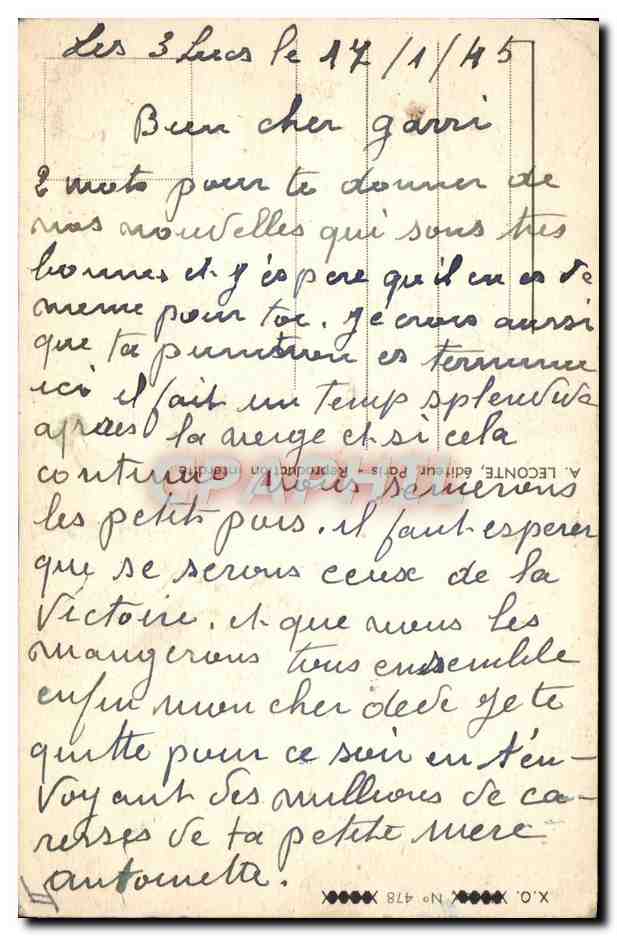 Les 3 Lucs le 17/1/45
Bien cher garri
2 mots pour te donner de
nos nouvelles qui sons tres
bonnes et j'espere qu'il en es de
meme pour toi. Je crois aussi
que ta punition es terminee
ici il fait un temp splendide
apres la neige et si cela
continue nous semerons
les petits pois. il faut esperer
que se serons ceux de la
Victoire. et que nous les
mangerons tous ensemble
enfin mon cher dede je te
quitte pour ce soir en t'en-
voyant des millions de ca-
resses de ta petite mere
antoinette.
A. LECONTE, éditeur, Paris - Reproduction interdite
X.O. N° 478
CPAPHIL